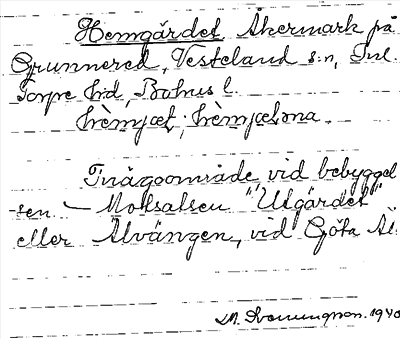 Hemgärdet Åkermark på
Grunnered, Västerland s:n, Inl.
Torpe hd, Bohus l.
hèmjæt; hèmjætəna.
Inägoområde vid bebyggel
-sen. — Motsatsen "Utgärdet"
eller Älvängen, vid Göta Äl
M. 1940